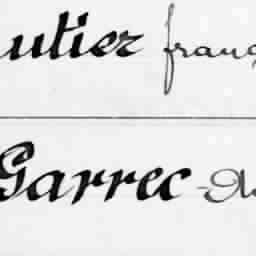 utier franç
Garrec